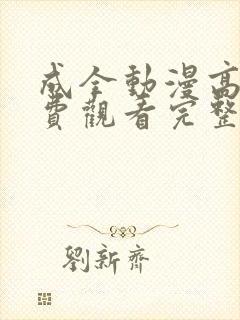 成全動漫高
費觀看完整
劉新齊